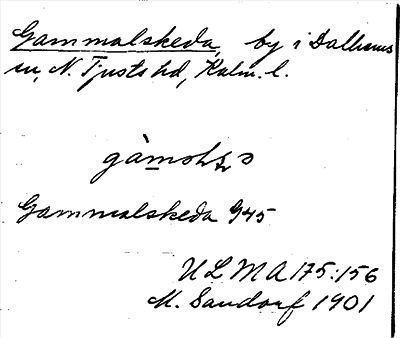 Gammalskeda, by i Dalhems
sn, N. Tjusts hd, Kalm. l.
Gammalskeda 945
ULMA 175:156
M. Sandorf 1901